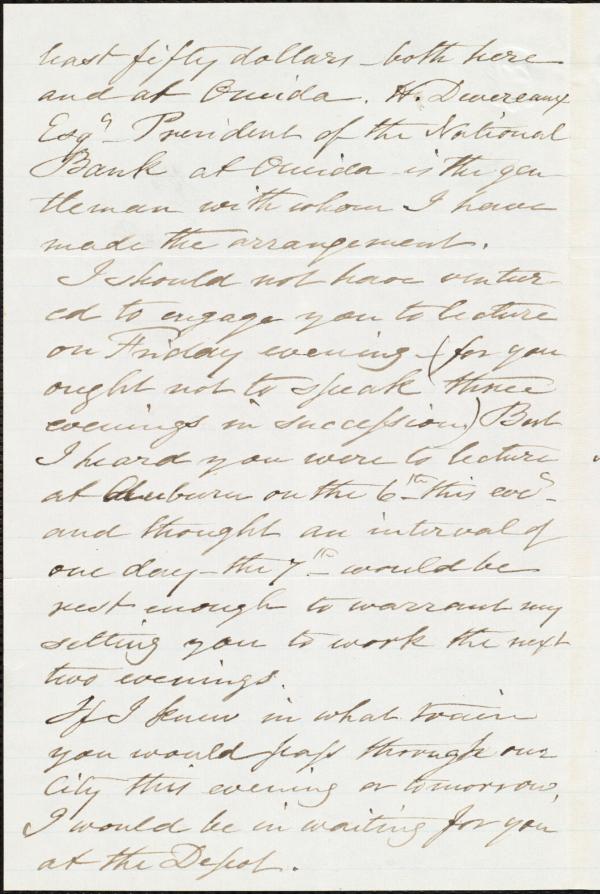 least fifty dollars - both here
and at Oneida. H. Devereaux
Esqr - President of the National
Bank at Oneida - is the gen
tleman with whom I have
made the arrangement.
I should not have ventur-
ed to engage you to lecture
on Friday evening - (for you
ought not to speak three
evenings in succession) But
I heard you were to lecture
at Auburn on the 6th this eveg -
and thought an interval of
one day - the 7th - would be
rest enough to warrant my
setting you to work the next
two evenings.
If I knew in what train
you would pass through our
City this evening or tomorrow,
I would be in waiting for you
at the Depot.